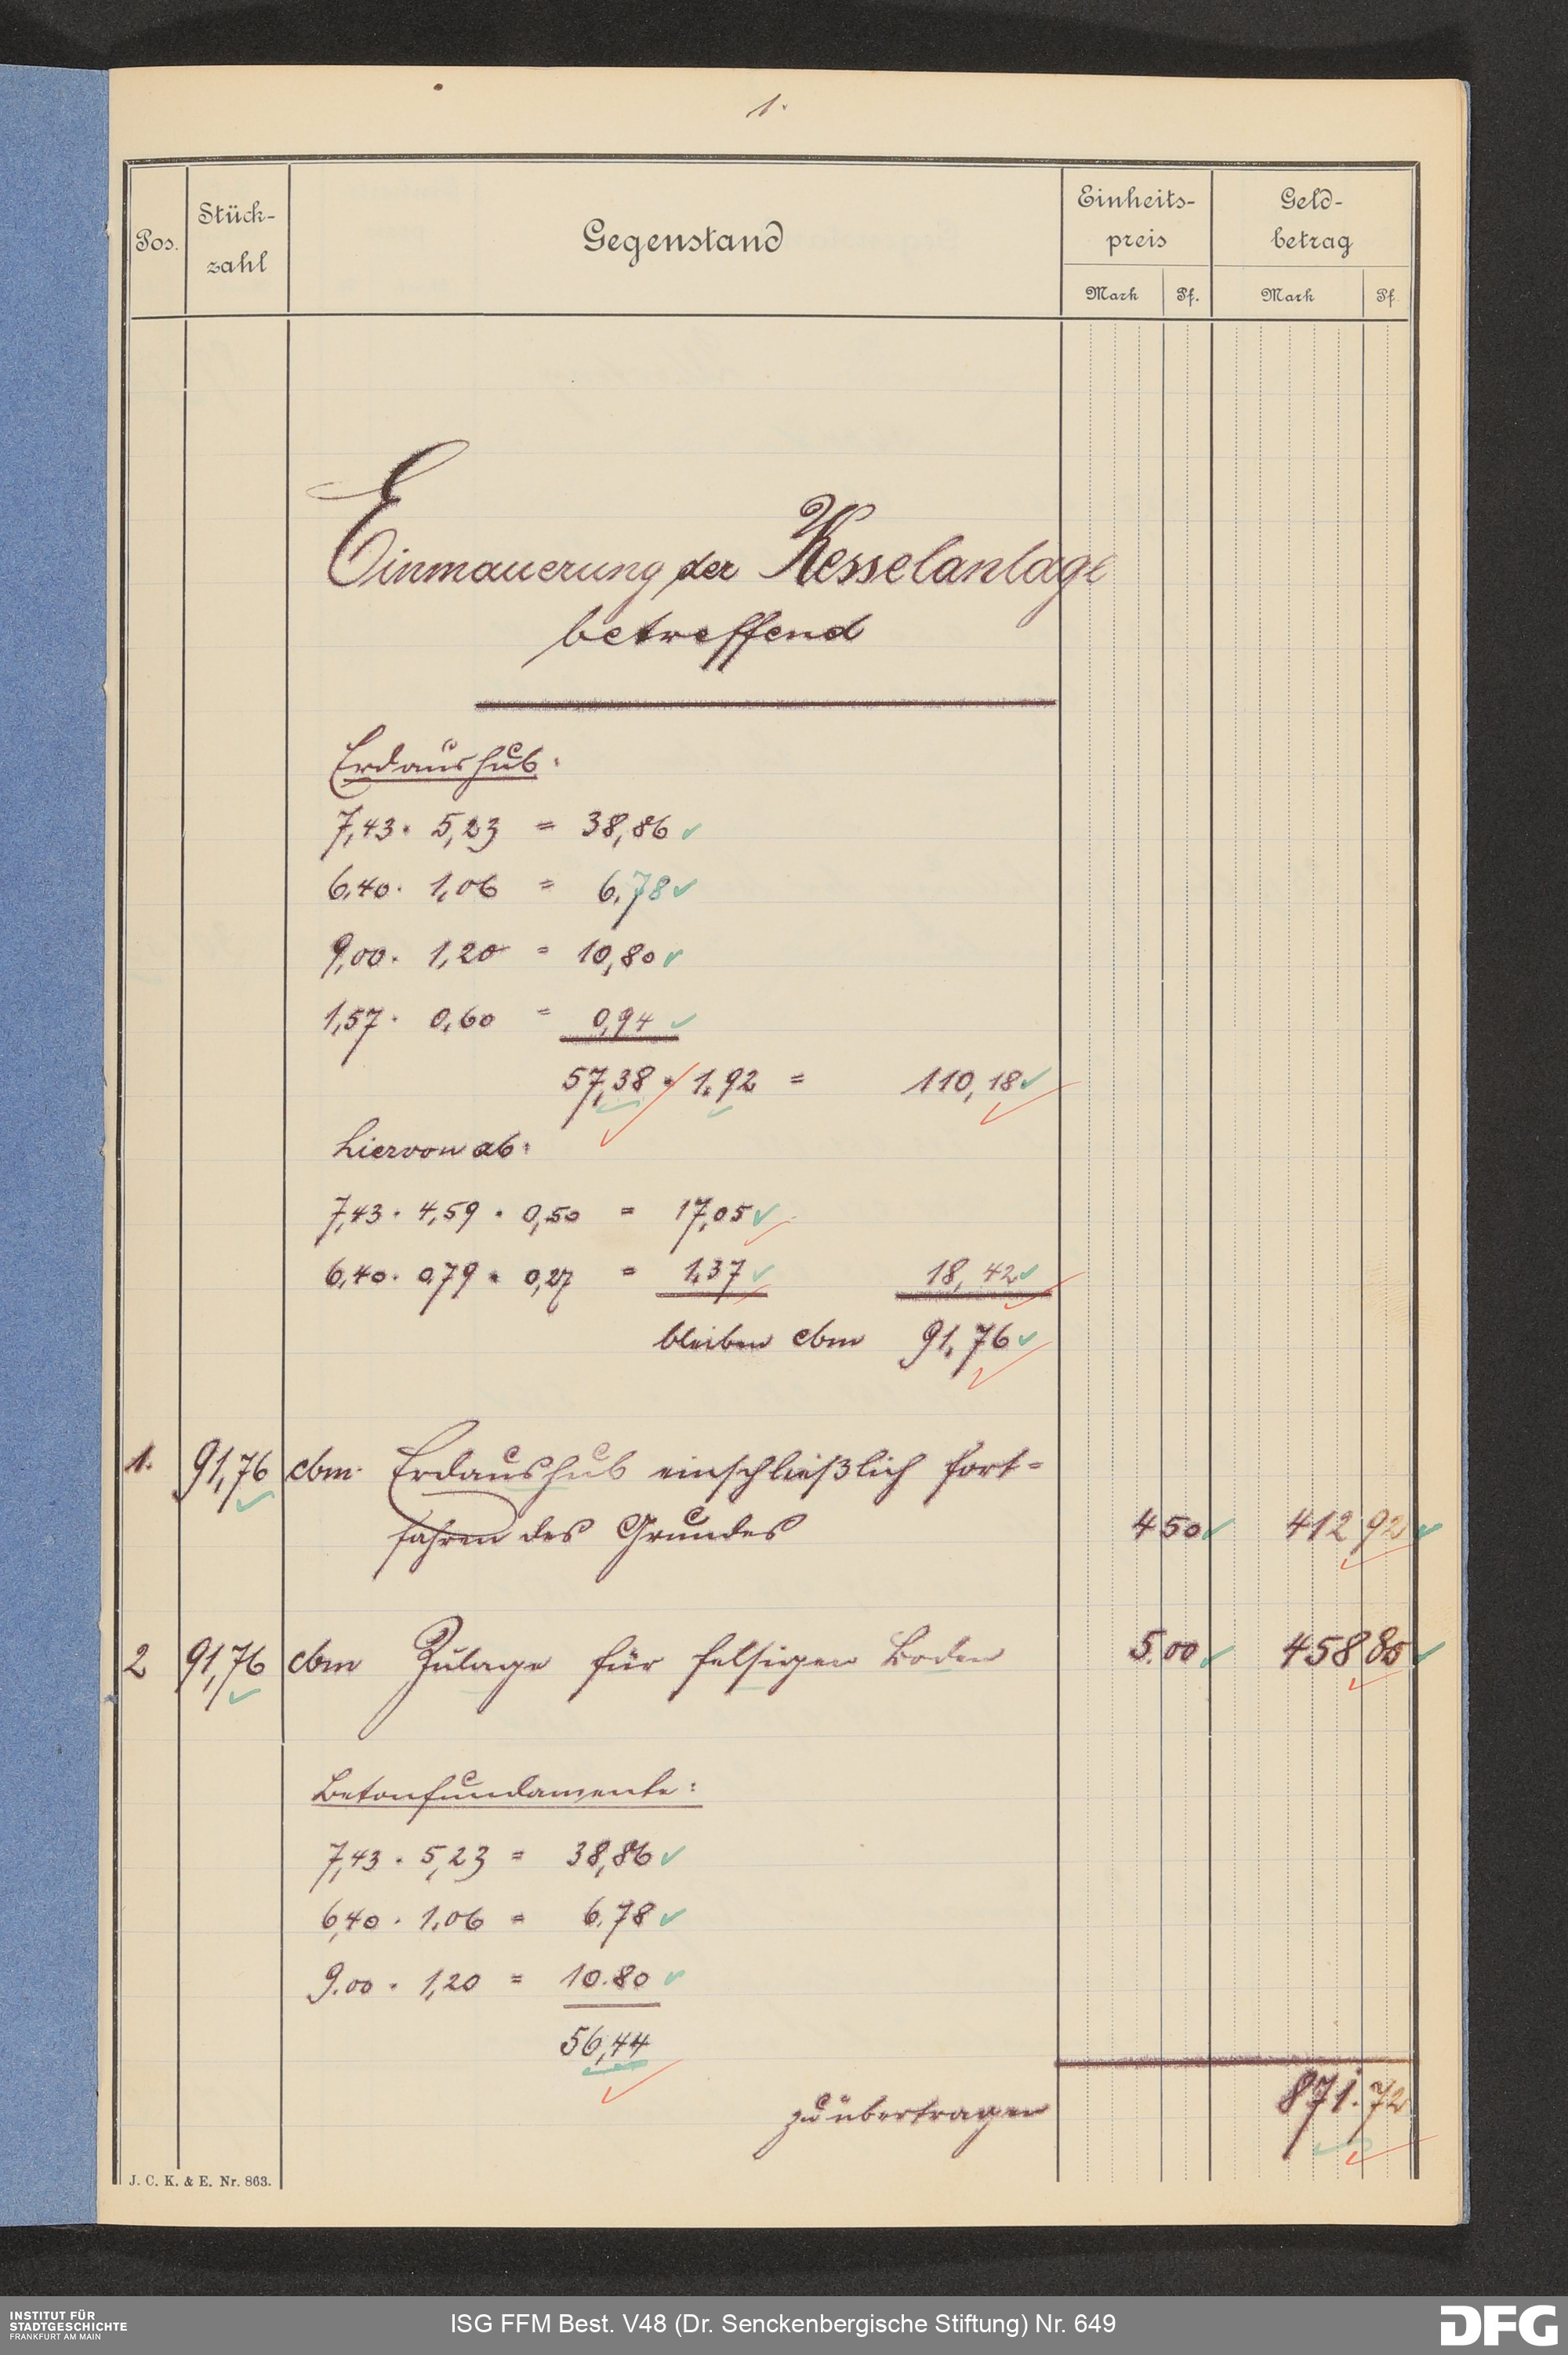 1.
Pos.
Stück-
zahl
Gegenstand
Einheits-
preis
Geld-
betrag
Mark Pf. Mark Pf.
Einmauerung der Kesselanlage
betreffend
Erdaushub:
7,43 · 5,23 = 38,86 ✓
6,40 · 1,06 = 6,78 ✓
9,00 · 1,20 = 10,80 ✓
1,57 · 0,60 = 0,94 ✓
57,38 · 1,92 = 110,18 ✓
hiervon ab:
7,43 · 4,59 · 0,50 = 17,05 ✓
6,40 · 0,79 · 0,27 = 1,37 ✓ 18,42 ✓
bleiben cbm 91,76 ✓
1. 91,76 cbm Erdaushub einschließlich fort-
fahren des Grundes 4 50 ✓ 412 92 ✓
2 91,76 cbm Zulage für felsigen Boden 5.00 ✓ 458 80 ✓
Betonfundamente:
7,43 · 5,23 = 38,86 ✓
6,40 · 1,06 = 6,78 ✓
9.00 · 1,20 = 10.80 ✓
56,44
zu übertragen 871.72
J. C. K. & E. Nr. 863.
INSTITUT FÜR
STADTGESCHICHTE
FRANKFURT AM MAIN
ISG FFM Best. V48 (Dr. Senckenbergische Stiftung) Nr. 649
DFG